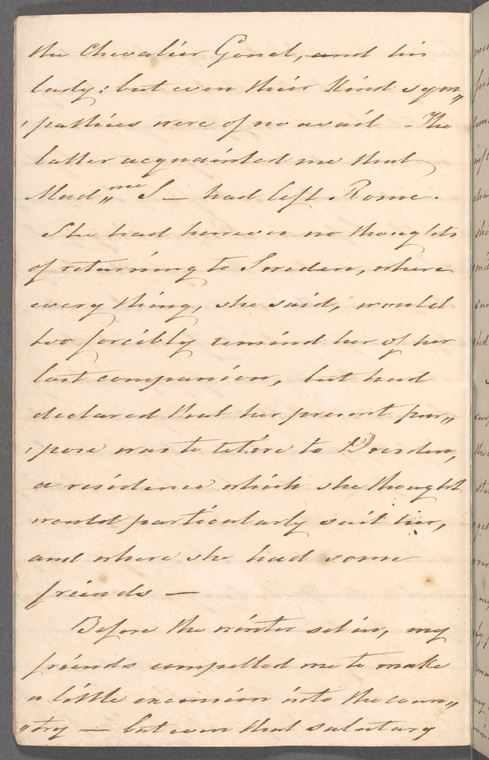 the Chevalier Gonet, and his
lady; but even their kind sym„
‚pathies were of no avail - The
latter acquainted me that
Mad„me S — had left Rome.
She had however no thoughts
of returning to Sweden, where
every thing, she said, would
too forcibly remind her of her
lost companion, but had
declared that her present pur„
‚pose was to retire to Dresden,
a residence which she thought
would particularly suit her,
and where she had some
friends —
Before the winter set in, my
friends compelled me to make
a little excursion into the coun„
„try — but even that salutary